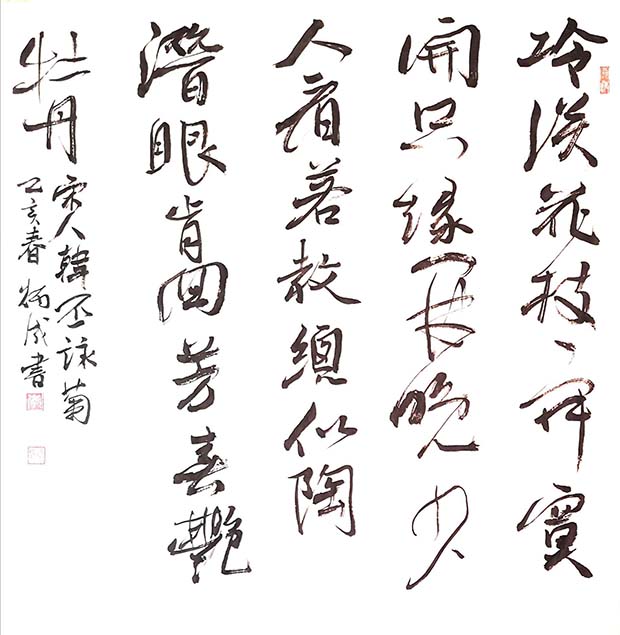 冷淡花枝
開只緣晚少
人看若教總似陶
潛眼肯向芳春艷
牡丹
宋人韓丕詠菊
乙亥春炳成書